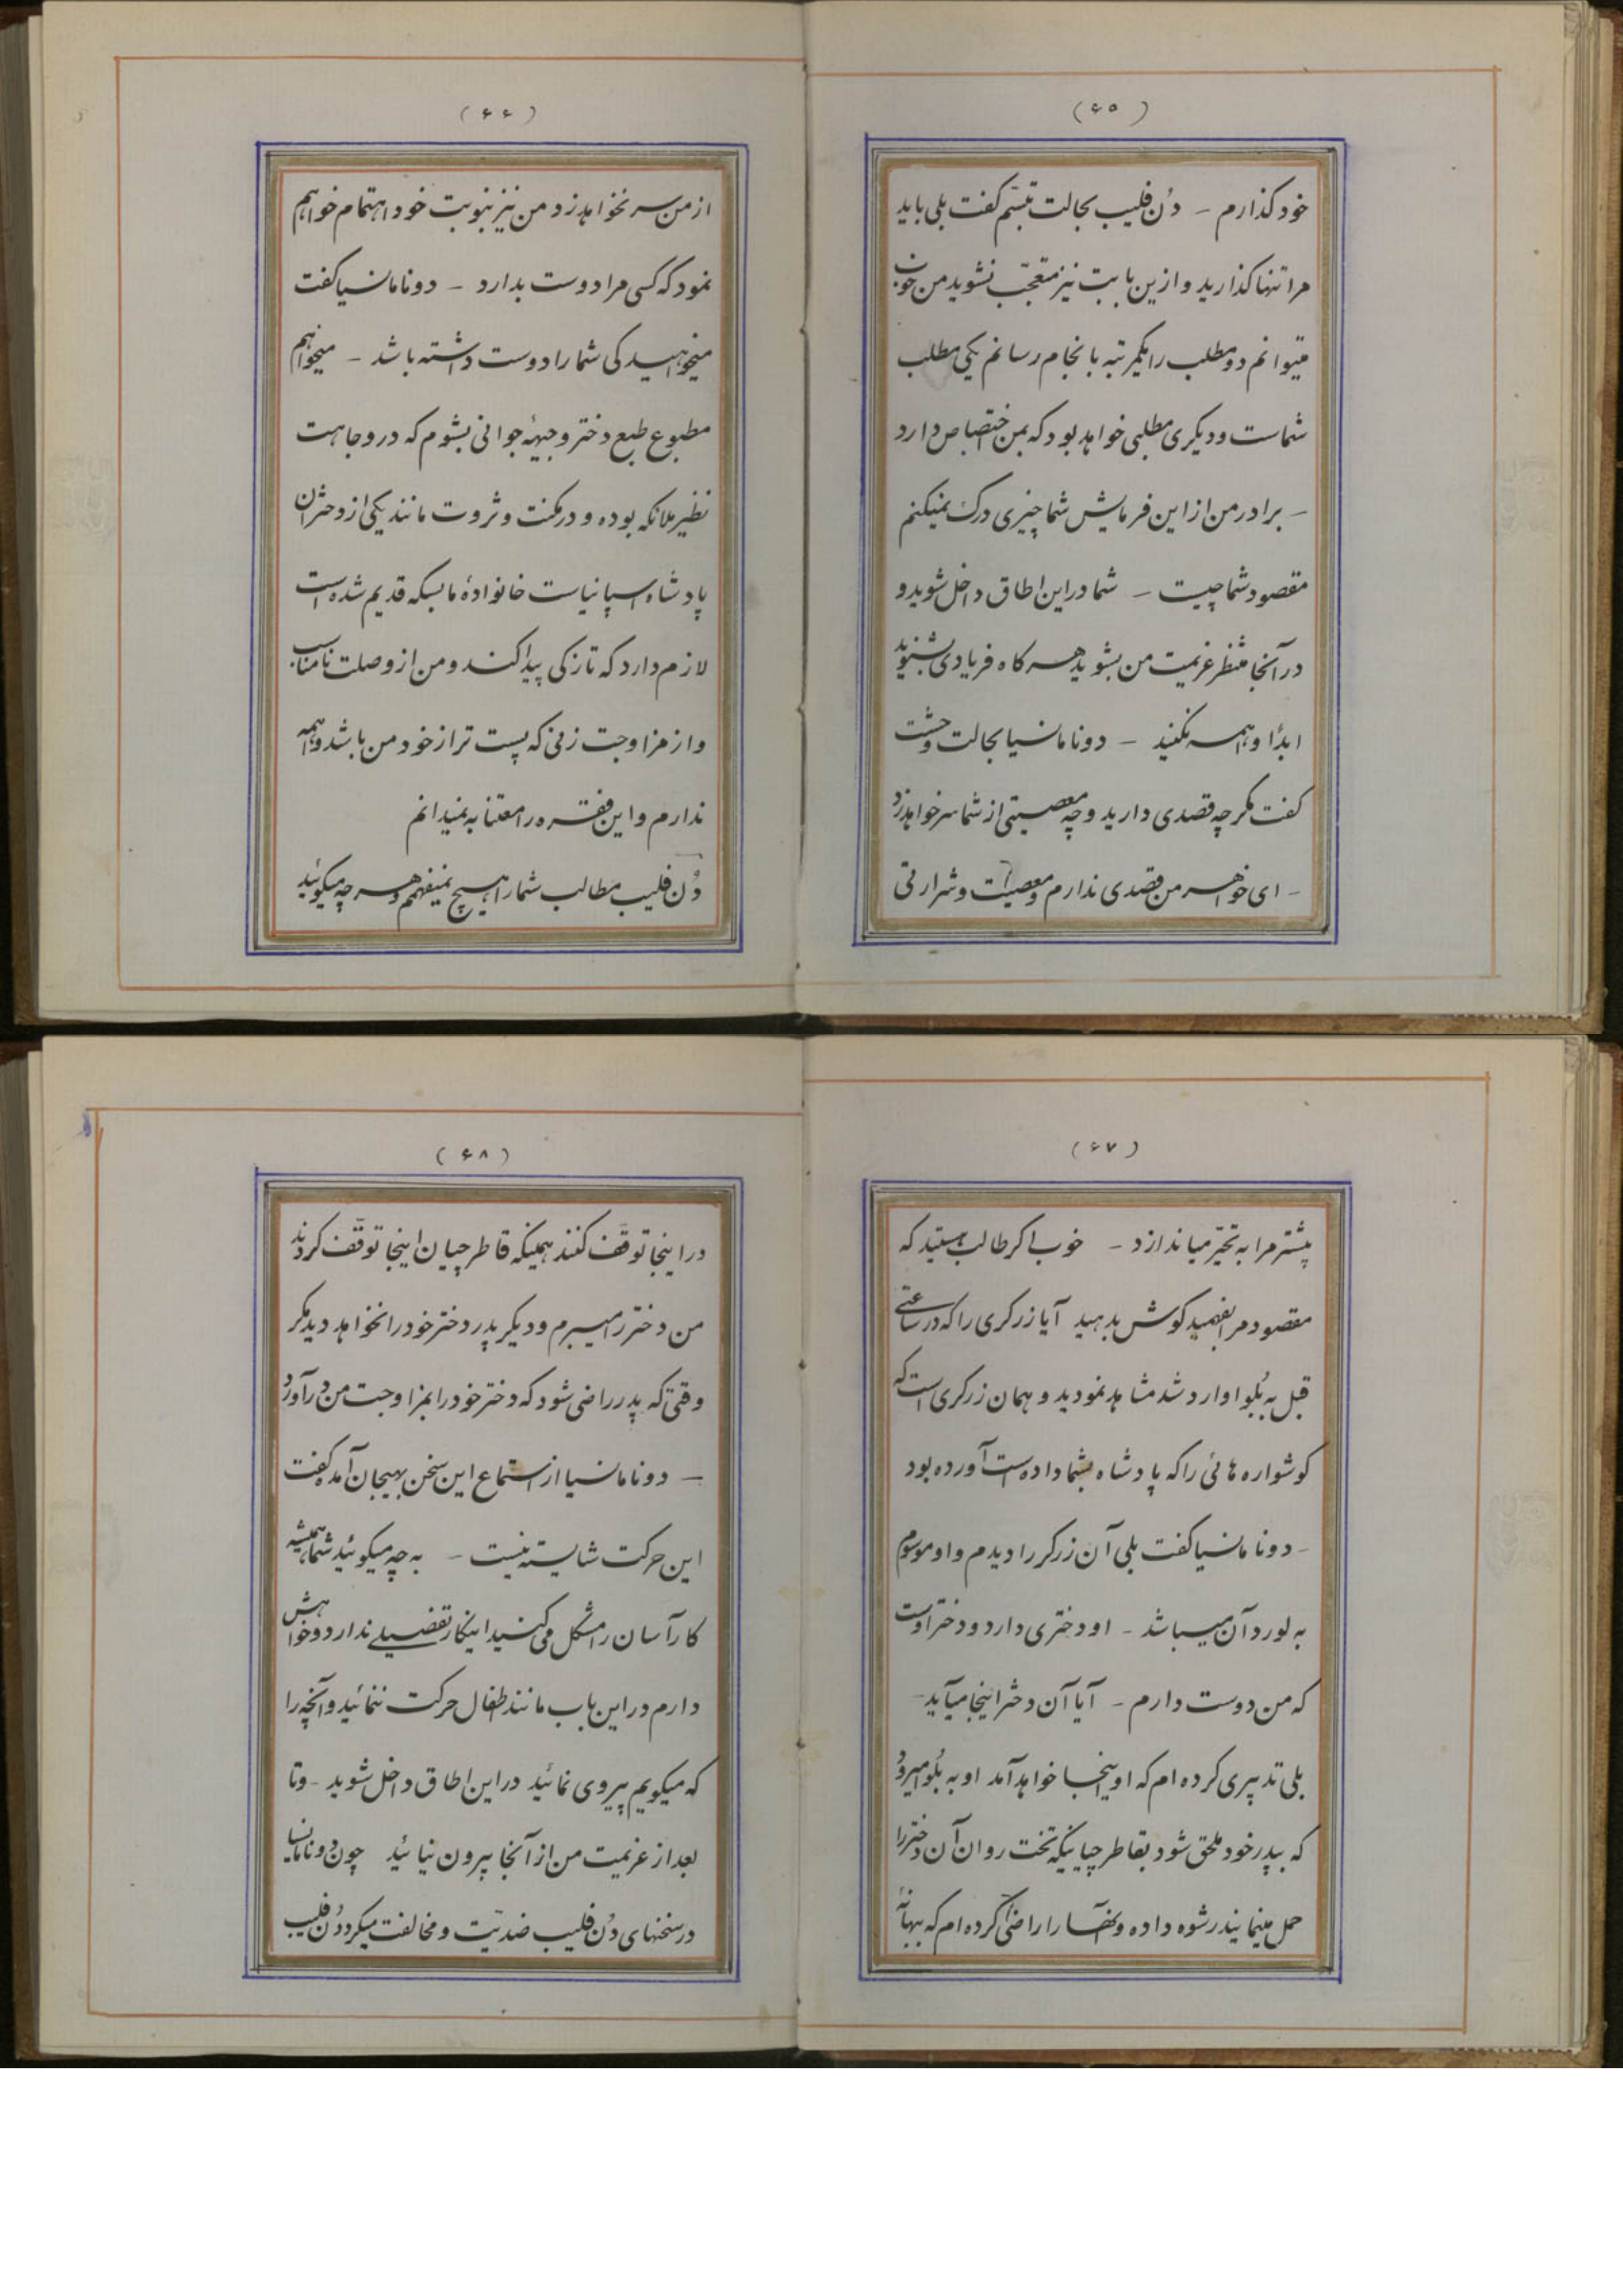 (۶۵)
خود گذارم - دُن فلیپ بحالت تبسّم گفت بلی باید
مرا تنها گذارید و ازین بابت نیز متعجّب نشوید من خوب
میتوانم دو مطلب را یکمرتبه بانجام رسانم یکی مطلب
شماست و دیگری مطلبی خواهد بود که بمن اختصاص دارد
- برادر من از این فرمایش شما چیزی درک نمیکنم
مقصود شما چیست - شما در این اطاق داخل شوید و
در آنجا منتظر عزیمت من بشوید هر گاه فریادی بشنوید
ابداً واهمه نکنید - دونا مانسیا بحالت وحشت
گفت مگر چه قصدی دارید و چه معصیتی از شما سر خواهد زد
- ای خواهر من قصدی ندارم و معصیت و شرارتی
(۶۶)
از من سر نخواهد زد من نیز بنوبت خود اهتمام خواهم
نمود که کسی مرا دوست بدارد - دونا مانسیا گفت
میخواهید کی شما را دوست داشته باشد - میخواهم
مطبوع طبع دختر وجیههٔ جوانی بشوم که در وجاهت
نظیر ملائکه بوده و در مکنت و ثروت مانند یکی از دختران
پادشاه اسپانیاست خانوادهٔ ما بسکه قدیم شده است
لازم دارد که تازگی پیدا کند و من از وصلت نامناسب
و از مزاوجت زنی که پست تر از خود من باشد واهمه
ندارم و این فقره را معتنا به نمیدانم
دُن فلیپ مطالب شما را هیچ نمیفهمم و هر چه میگوئید
(۶۷)
بیشتر مرا به تحیّر میاندازد - خوب اگر طالب هستید که
مقصود مرا بفهمید گوش بدهید آیا زرگری را که در ساعتی
قبل به بُلوا وارد شد مشاهد نمودید و همان زرگری است که
گوشواره هائی را که پادشاه بشما داده است آورده بود
- دونا مانسیا گفت بلی آن زرگر را دیدم و او موسوم
به لوردآن میباشد - او دختری دارد و دختر اوست
که من دوست دارم - آیا آن دختر اینجا میآید -
بلی تدبیری کرده ام که او اینجا خواهد آمد او به بُلوا میرود
که بپدر خود ملحق شود بقاطرچیانیکه تخت روان آن دختر را
حمل مینمایند رشوه داده و آنها را راضی کرده ام که ببهانهٔ
(۶۸)
در اینجا توقّف کنند همینکه قاطرچیان اینجا توقّف کردند
من دختر را میبرم و دیگر پدر دختر خود را نخواهد دید مگر
وقتی که پدر راضی شود که دختر خود را بمزاوجت من در آورد
- دونا مانسیا از استماع این سخن بهیجان آمده گفت
این حرکت شایسته نیست - به چه میگوئید شما همیشه
کار آسان را مشکل می کنید اینکار تفضیلی ندارد و خواهش
دارم در این باب مانند اطفال حرکت ننمائید و آنچه را
که میگویم پیروی نمائید در این اطاق داخل شوید - و تا
بعد از عزیمت من از آنجا بیرون نیائید چون دونا مانسیا
در سخنهای دُن فلیپ ضدیّت و مخالفت میکرد دُن فلیپ